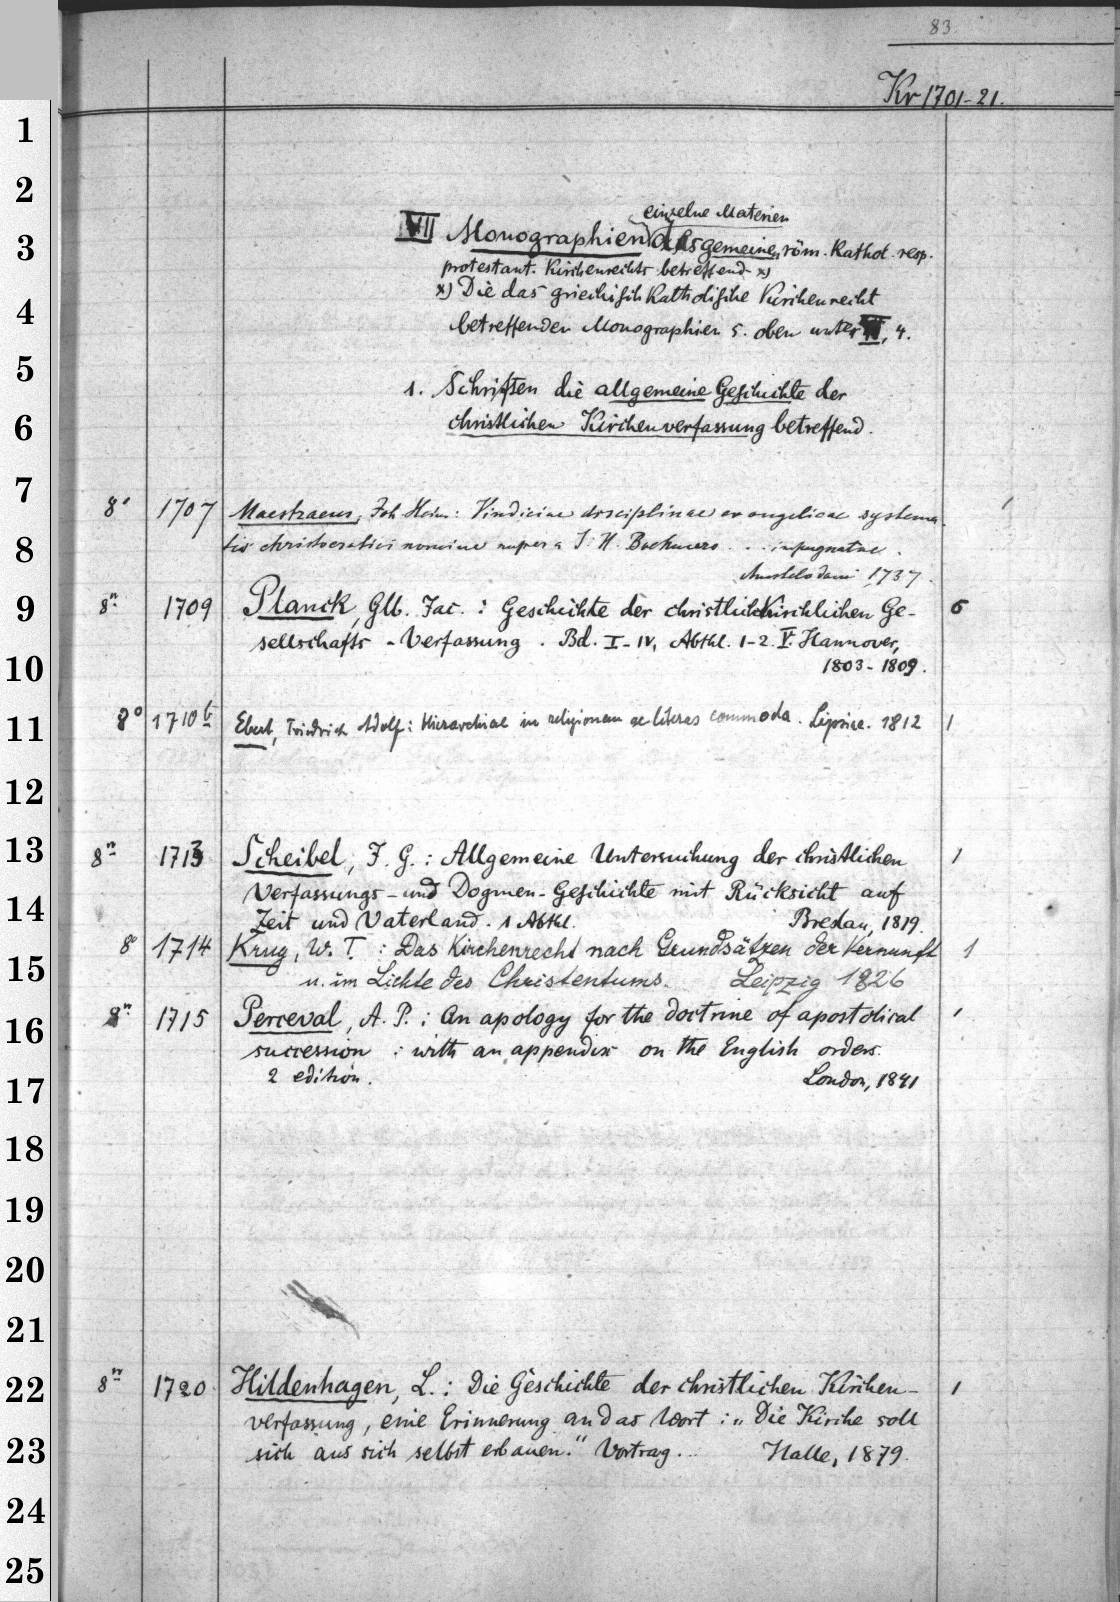 83.
Kr 1701-21.
einzelne Materien
VII Monographien des gemeinen röm. Kathol. resp.
protestant. Kirchenrechts betreffend x)
x) Die das griechisch Katholische Kirchenrecht
betreffenden Monographien s. oben unter , 4.
1. Schriften die allgemeine Geschichte der
christlichen Kirchenverfassung betreffend.
8° 1707 Maestraeus, Joh Heinr: Vindiciae disciplinae evangelicae systema-
tis christocratici nomine nuper a J. H. Boehmero . . . impugnatae.
Amstelodami 1737.
8° 1709 Planck, Glb. Jac. : Geschichte der christlich kirchlichen Ge- 6
sellschafts - Verfassung . Bd. I-IV, Abthl. 1-2. V. Hannover,
1803-1809.
8° 1710b Ebert, Friedrich Adolf: Hierarchiae in religionem ac literas commoda. Lipsiae. 1812 1
8° 1713 Scheibel, J. G. : Allgemeine Untersuchung der christlichen 1
Verfassungs- und Dogmen-Geschichte mit Rücksicht auf
Zeit und Vaterland. 1 Abthl. Breslau, 1819.
8° 1714 Krug, W. T. : Das Kirchenrecht nach Grundsätzen der Vernunft 1
u. im Lichte des Christentums. Leipzig 1826
8° 1715 Perceval, A. P. : An apology for the doctrine of apostolical 1
succession : with an appendix on the English orders.
2 edition. London, 1841
8° 1720 Hildenhagen, L. : Die Geschichte der christlichen Kirchen- 1
verfassung, eine Erinnerung an das Wort : „Die Kirche soll
sich aus sich selbst erbauen." Vortrag. Halle, 1879.
1
2
3
4
5
6
7
8
9
10
11
12
13
14
15
16
17
18
19
20
21
22
23
24
25